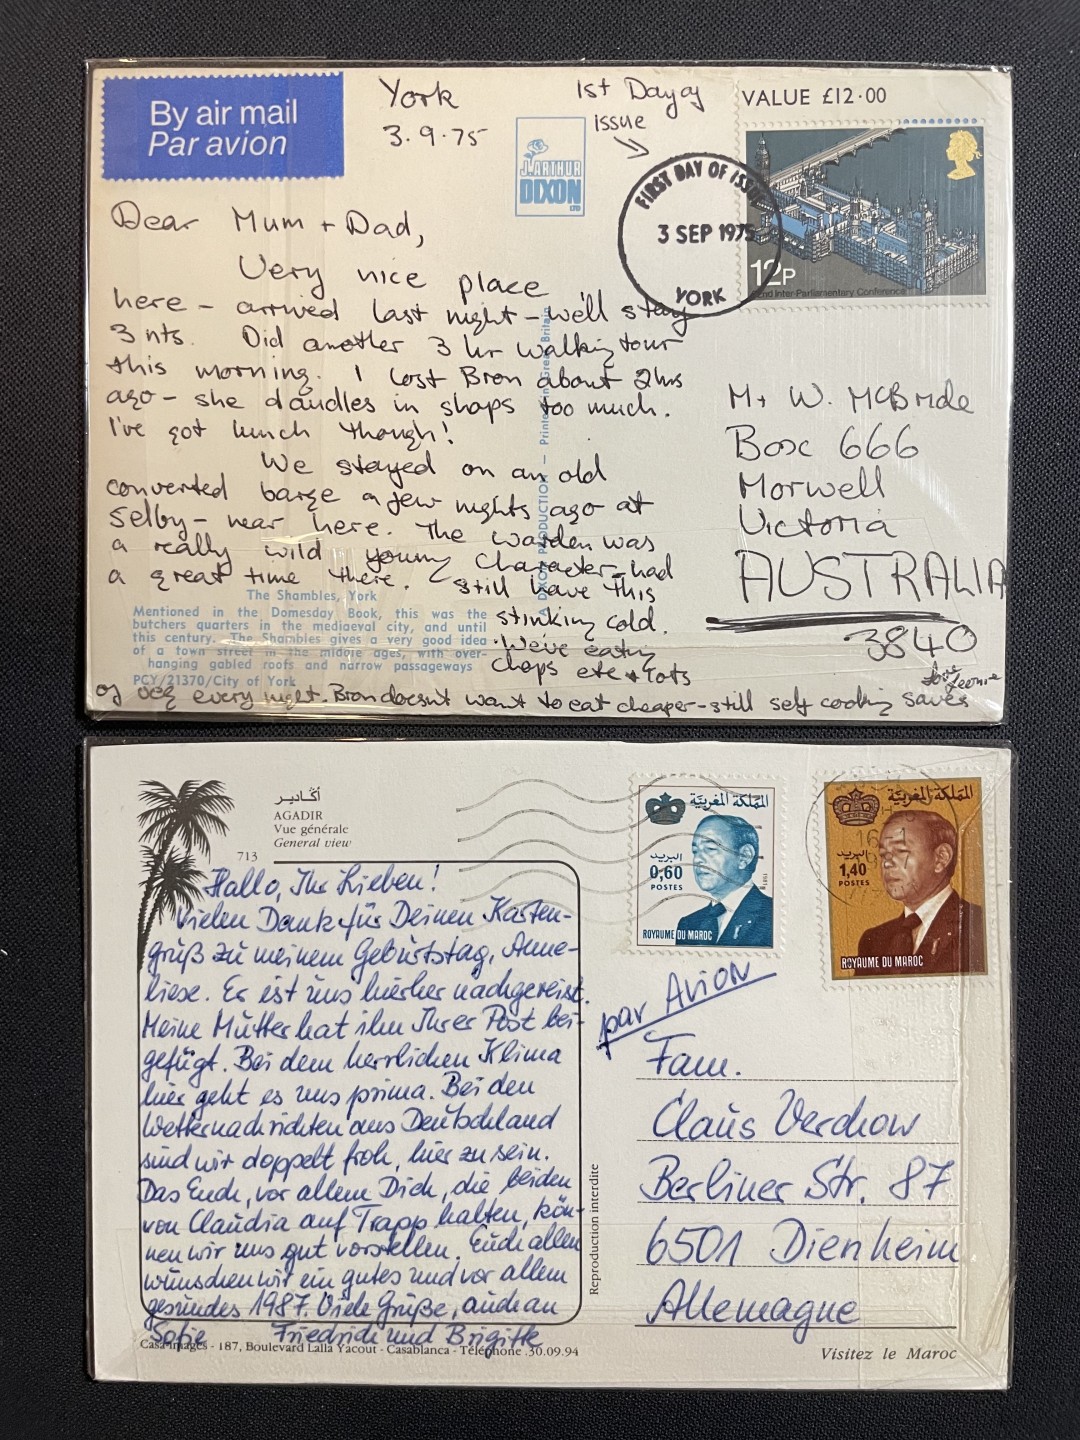 By air mail
Par avion
York
3.9.75
1st Day of
issue
VALUE £12.00
J. ARTHUR
DIXON
LTD
FIRST DAY OF ISSUE
3 SEP 1975
YORK
12P
62nd Inter-Parliamentary Conference
Dear Mum + Dad,
Very nice place
here - arrived last night - we'll stay
3 nts. Did another 3 hr walking tour
this morning. I lost Bron about 2hrs
ago - she dawdles in shops too much.
I've got lunch though!
We stayed on an old
converted barge a few nights ago at
Selby - near here. The warden was
a really wild young character - had
a great time there. Still have this
stinking cold.
We've eating
chops etc + lots
of veg every night. Bron doesn't want to eat cheaper - still self cooking saves
love
Leonie
Mr W. McBride
Box 666
Morwell
Victoria
AUSTRALIA
3840
The Shambles, York
Mentioned in the Domesday Book, this was the
butchers quarters in the mediaeval city, and until
this century. The Shambles gives a very good idea
of a town street in the middle ages, with over-
hanging gabled roofs and narrow passageways
PCY/21370/City of York
A DIXON PRODUCTION — Printed in Great Britain
أگادير
AGADIR
Vue générale
General view
713
Hallo, Ihr Lieben!
Vielen Dank für Deinen Karten-
gruß zu meinem Geburtstag, Anne-
liese. Er ist uns hierher nachgereist.
Meine Mutter hat ihn Ihrer Post bei-
gefügt. Bei dem herrlichen Klima
hier geht es uns prima. Bei den
Wetternachrichten aus Deutschland
sind wir doppelt froh, hier zu sein.
Das Euch, vor allem Dich, die beiden
von Claudia auf Trapp halten, kön-
nen wir uns gut vorstellen. Euch allen
wünschen wir ein gutes und vor allem
gesundes 1987. Viele Grüße, auch an
Sofie Friedrich und Brigitte
Casa-Images - 187, Boulevard Lalla Yacout - Casablanca - Téléphone .30.09.94
Reproduction interdite
المملكة المغربية
البريد
0,60
POSTES
ROYAUME DU MAROC
المملكة المغربية
البريد
1,40
POSTES
ROYAUME DU MAROC
par Avion
Fam.
Claus Verchow
Berliner Str. 87
6501 Dienheim
Allemagne
Visitez le Maroc